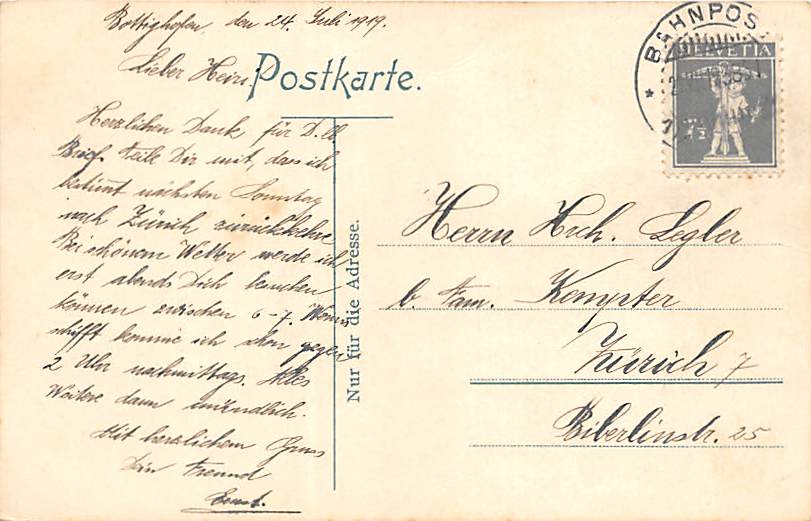 Bottighofen, den 24. Juli 1919.
Lieber Heiri!
Postkarte.
Herzlichen Dank für D. lb.
Brief. Teile Dir mit, dass ich
bestimmt nächsten Sonntag
nach Zürich zurückkehre
Bei schönem Wetter werde ich
erst abends Dich besuchen
können zwischen 6-7. Wenns
schifft komme ich schon gegen
2 Uhr nachmittags. Alles
Weitere dann mündlich.
Mit herzlichem Gruss
Dein Freund
Ernst.
Nur für die Adresse.
BAHNPOS
HELVETIA
7½
Herrn Hch. Legler
b. Fam. Kempter
Zürich 7
Biberlinstr. 25